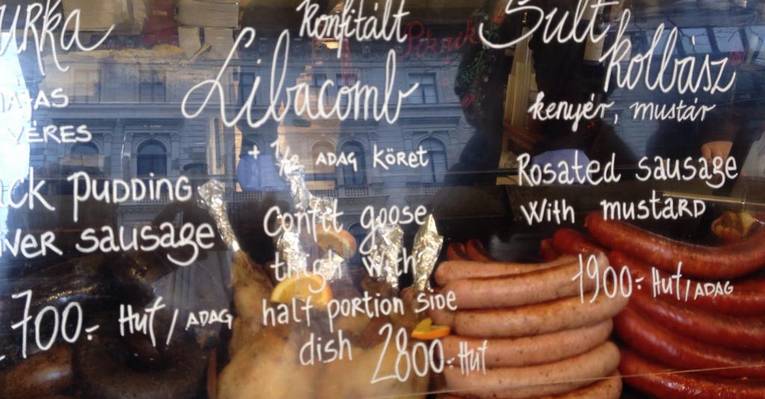 Konfitált
Libacomb
+ 1/2 ADAG KÖRET
Confit goose
thigh with
half portion side
dish 2800.-Huf
Sült
kolbász
kenyér, mustár
Rosated sausage
With mustard
1900.- Huf/ADAG
VÉRES
PUDDING
sausage
700.- Huf/ADAG